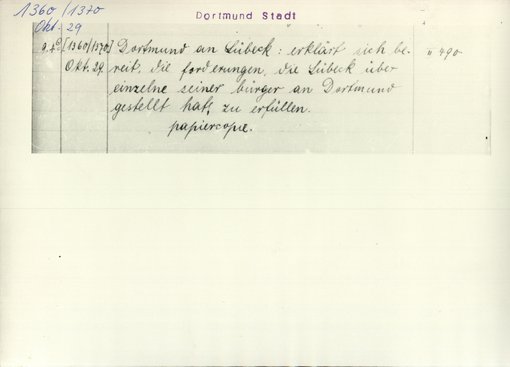 1360/1370
Okt. 29
Dortmund Stadt
[1360/1370] Dortmund an Lübeck: erklärt sich be- 490
Okt. 29 reit, die forderungen, die Lübeck über
einzelne seiner bürger an Dortmund
gestellt hat, zu erfüllen.
papiercopie.